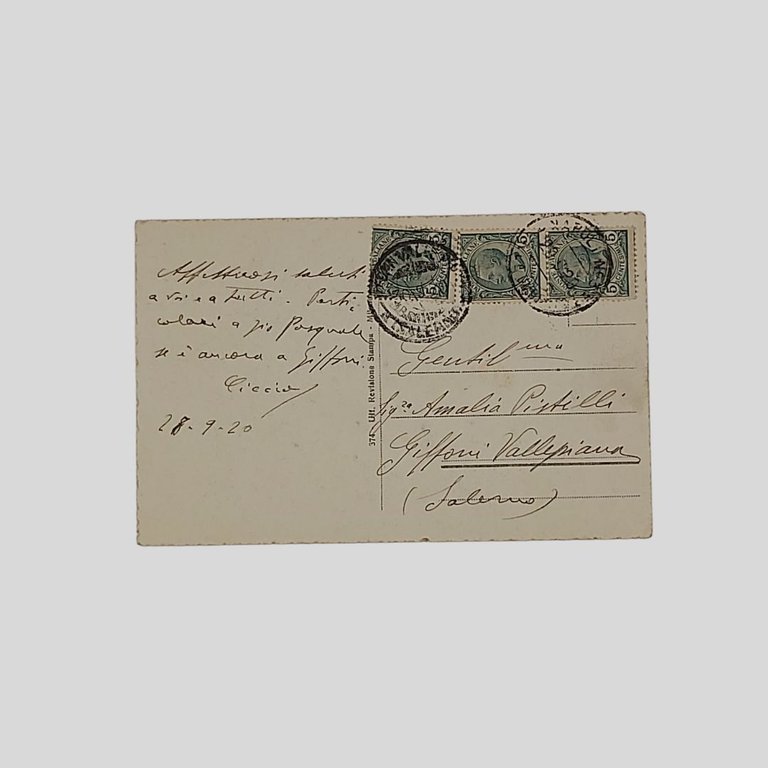 Affettuosi saluti
a voi e a tutti. Parti
colari a zio Pasquale
se è ancora a Giffoni.
Ciccio
28-9-20
374 Uff. Revisione Stampa - Mi
Gentil.ma
Sig.ra Amalia Pistilli
Giffoni Vallepiana
(Salerno)
5
15
15
(SALERNO)
NAPOLI